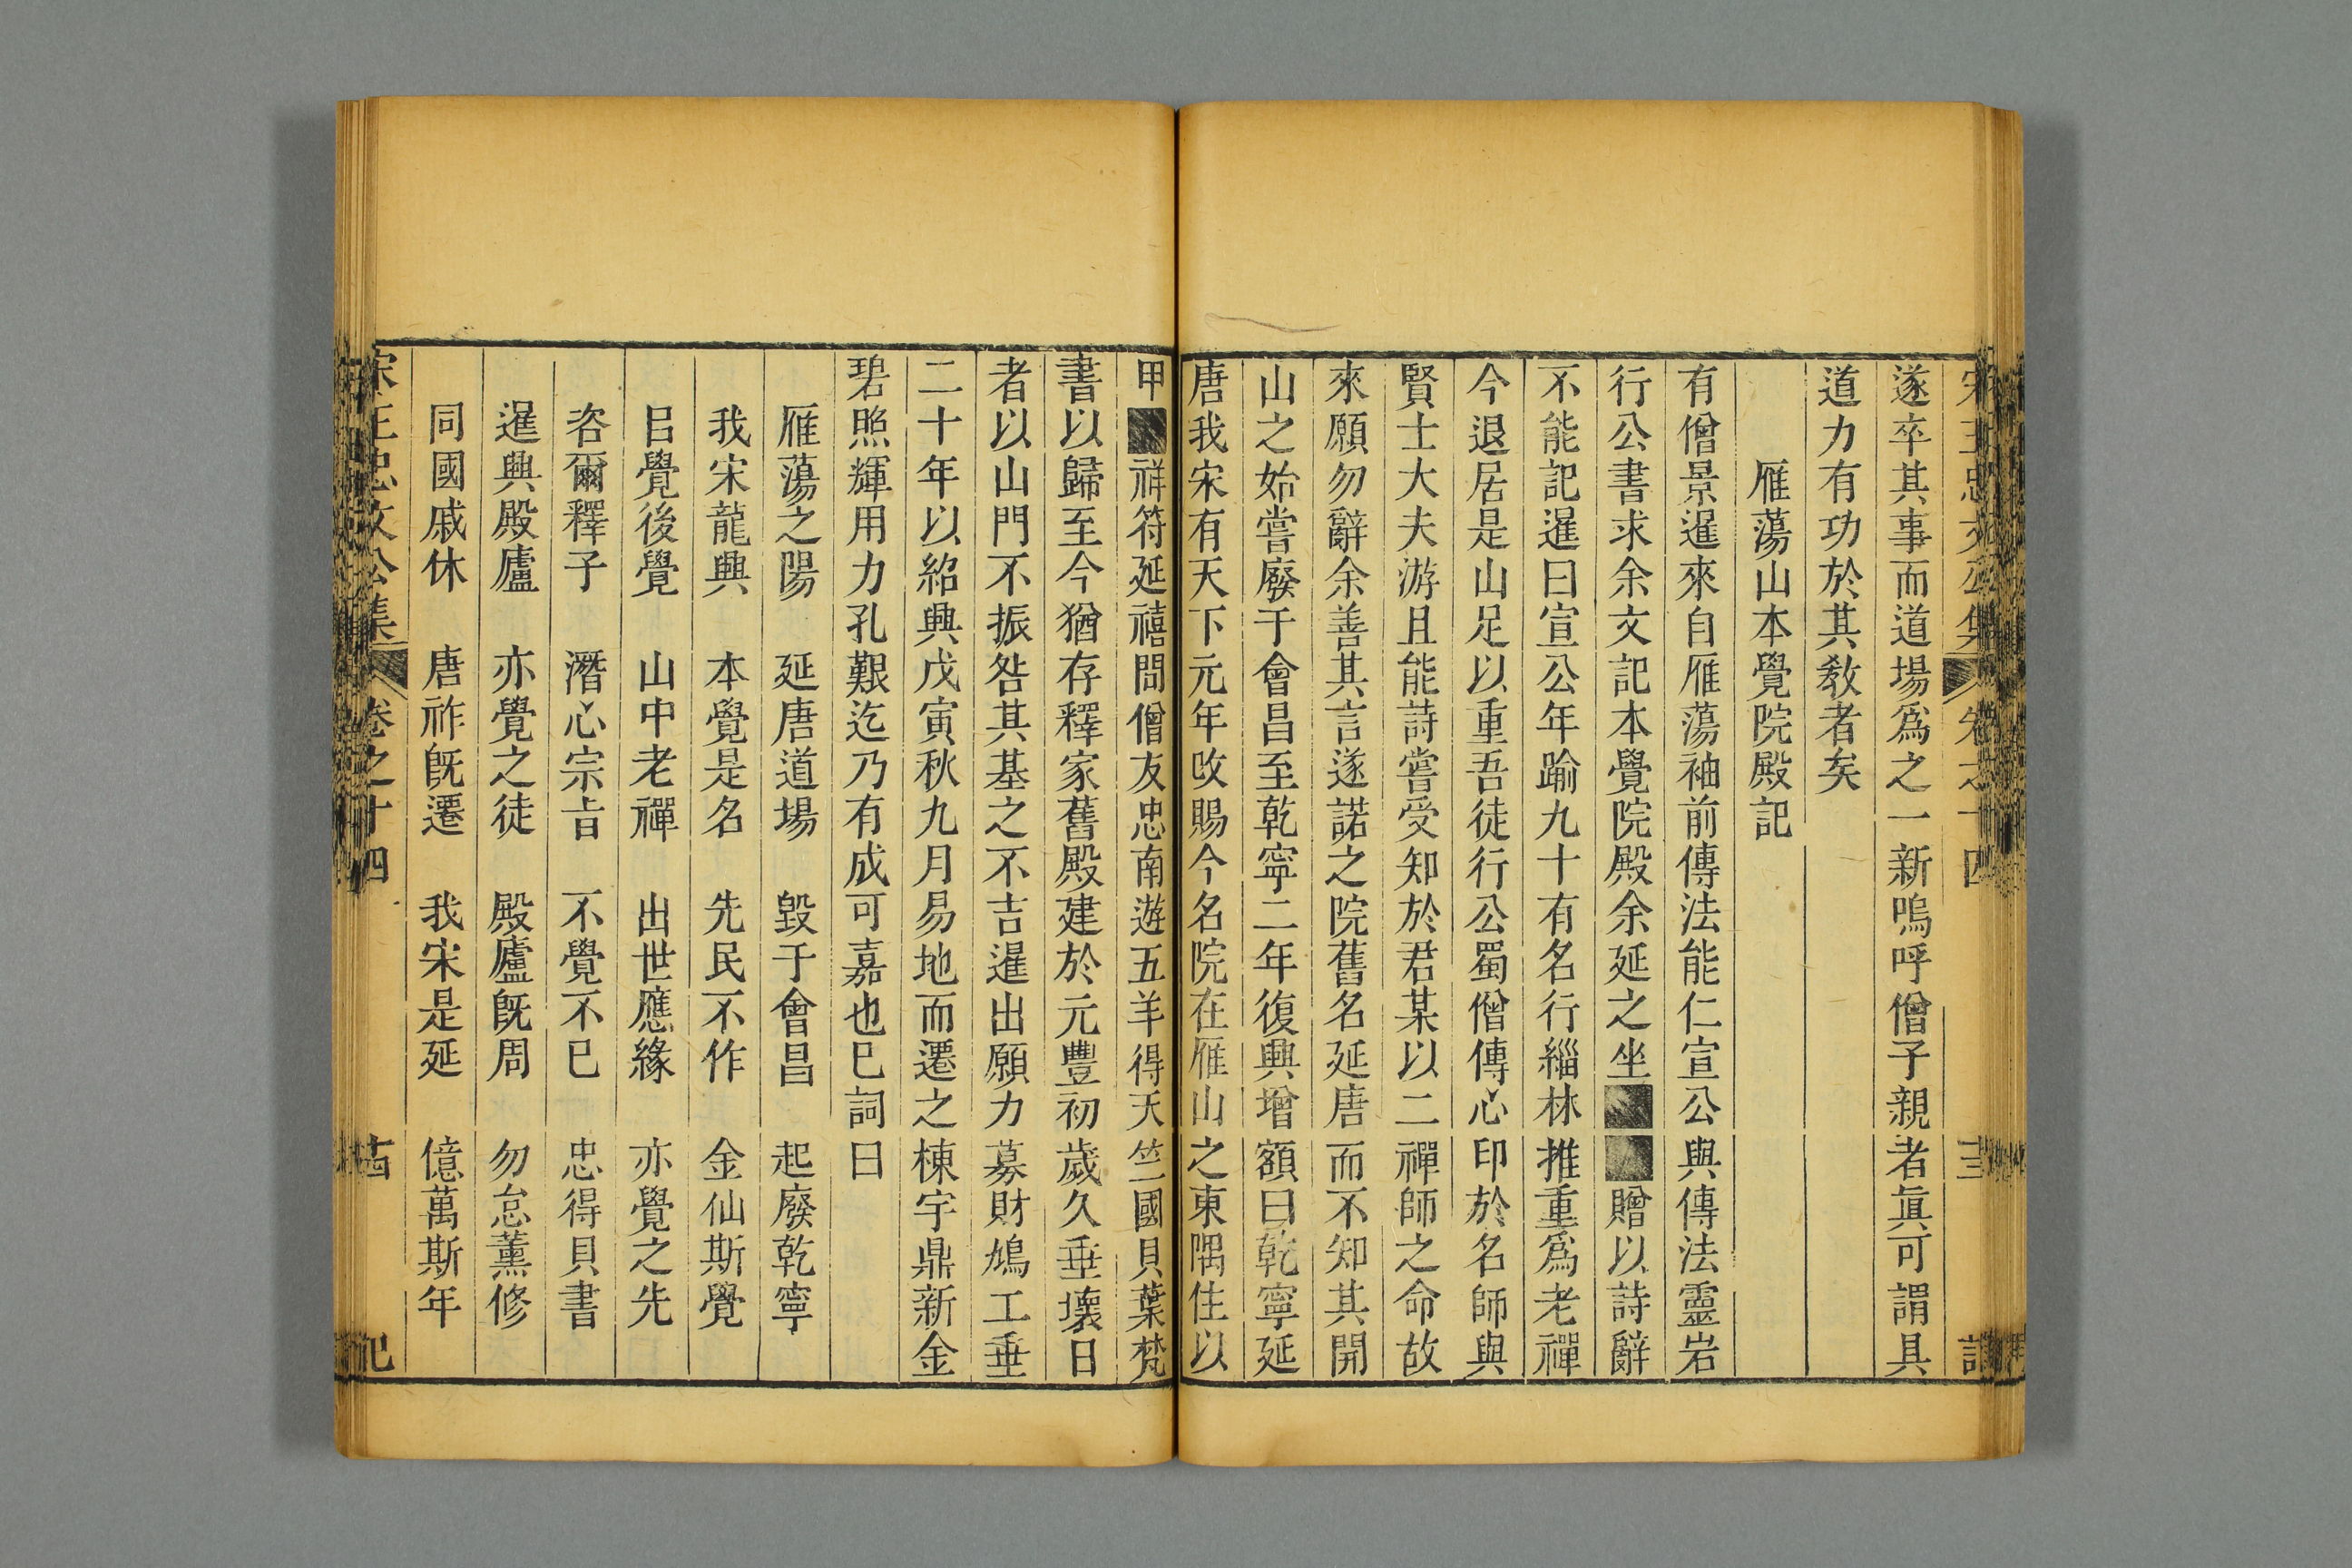 宋王忠文公集 卷之十四 十三 記
遂卒其事而道場爲之一新嗚呼僧子親者眞可謂具
道力有功於其敎者矣
雁蕩山本覺院殿記
有僧景暹來自雁蕩袖前傳法能仁宣公與傳法靈岩
行公書求余文記本覺院殿余延之坐■■贈以詩辭
不能記暹曰宣公年踰九十有名行緇林推重爲老禪
今退居是山足以重吾徒行公蜀僧傳心印於名師與
賢士大夫游且能詩嘗受知於君某以二禪師之命故
來願勿辭余善其言遂諾之院舊名延唐而不知其開
山之始嘗廢于會昌至乾寧二年復興增額曰乾寧延
唐我宋有天下元年改賜今名院在雁山之東隅住以
甲■祥符延禧間僧友忠南遊五羊得天竺國貝葉梵
書以歸至今猶存釋家舊殿建於元豐初歲久垂壞日
者以山門不振咎其基之不吉暹出願力募財鳩工垂
二十年以紹興戊寅秋九月易地而遷之棟宇鼎新金
碧照輝用力孔艱迄乃有成可嘉也已詞曰
雁蕩之陽 延唐道場 毀于會昌 起廢乾寧
我宋龍興 本覺是名 先民不作 金仙斯覺
㠯覺後覺 山中老禪 出世應緣 亦覺之先
咨爾釋子 潛心宗旨 不覺不已 忠得貝書
暹興殿廬 亦覺之徒 殿廬旣周 勿怠薰修
同國戚休 唐祚旣遷 我宋是延 億萬斯年
宋王忠文公集 卷之十四 十四 記